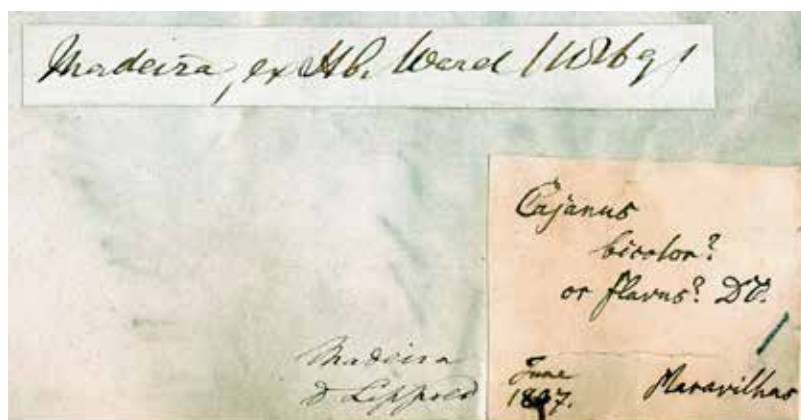 Madeira, ex Hb. Ward
Cajanus
bicolor?
or flavus? DC.
Madeira
Lippold
June
Maravilhas